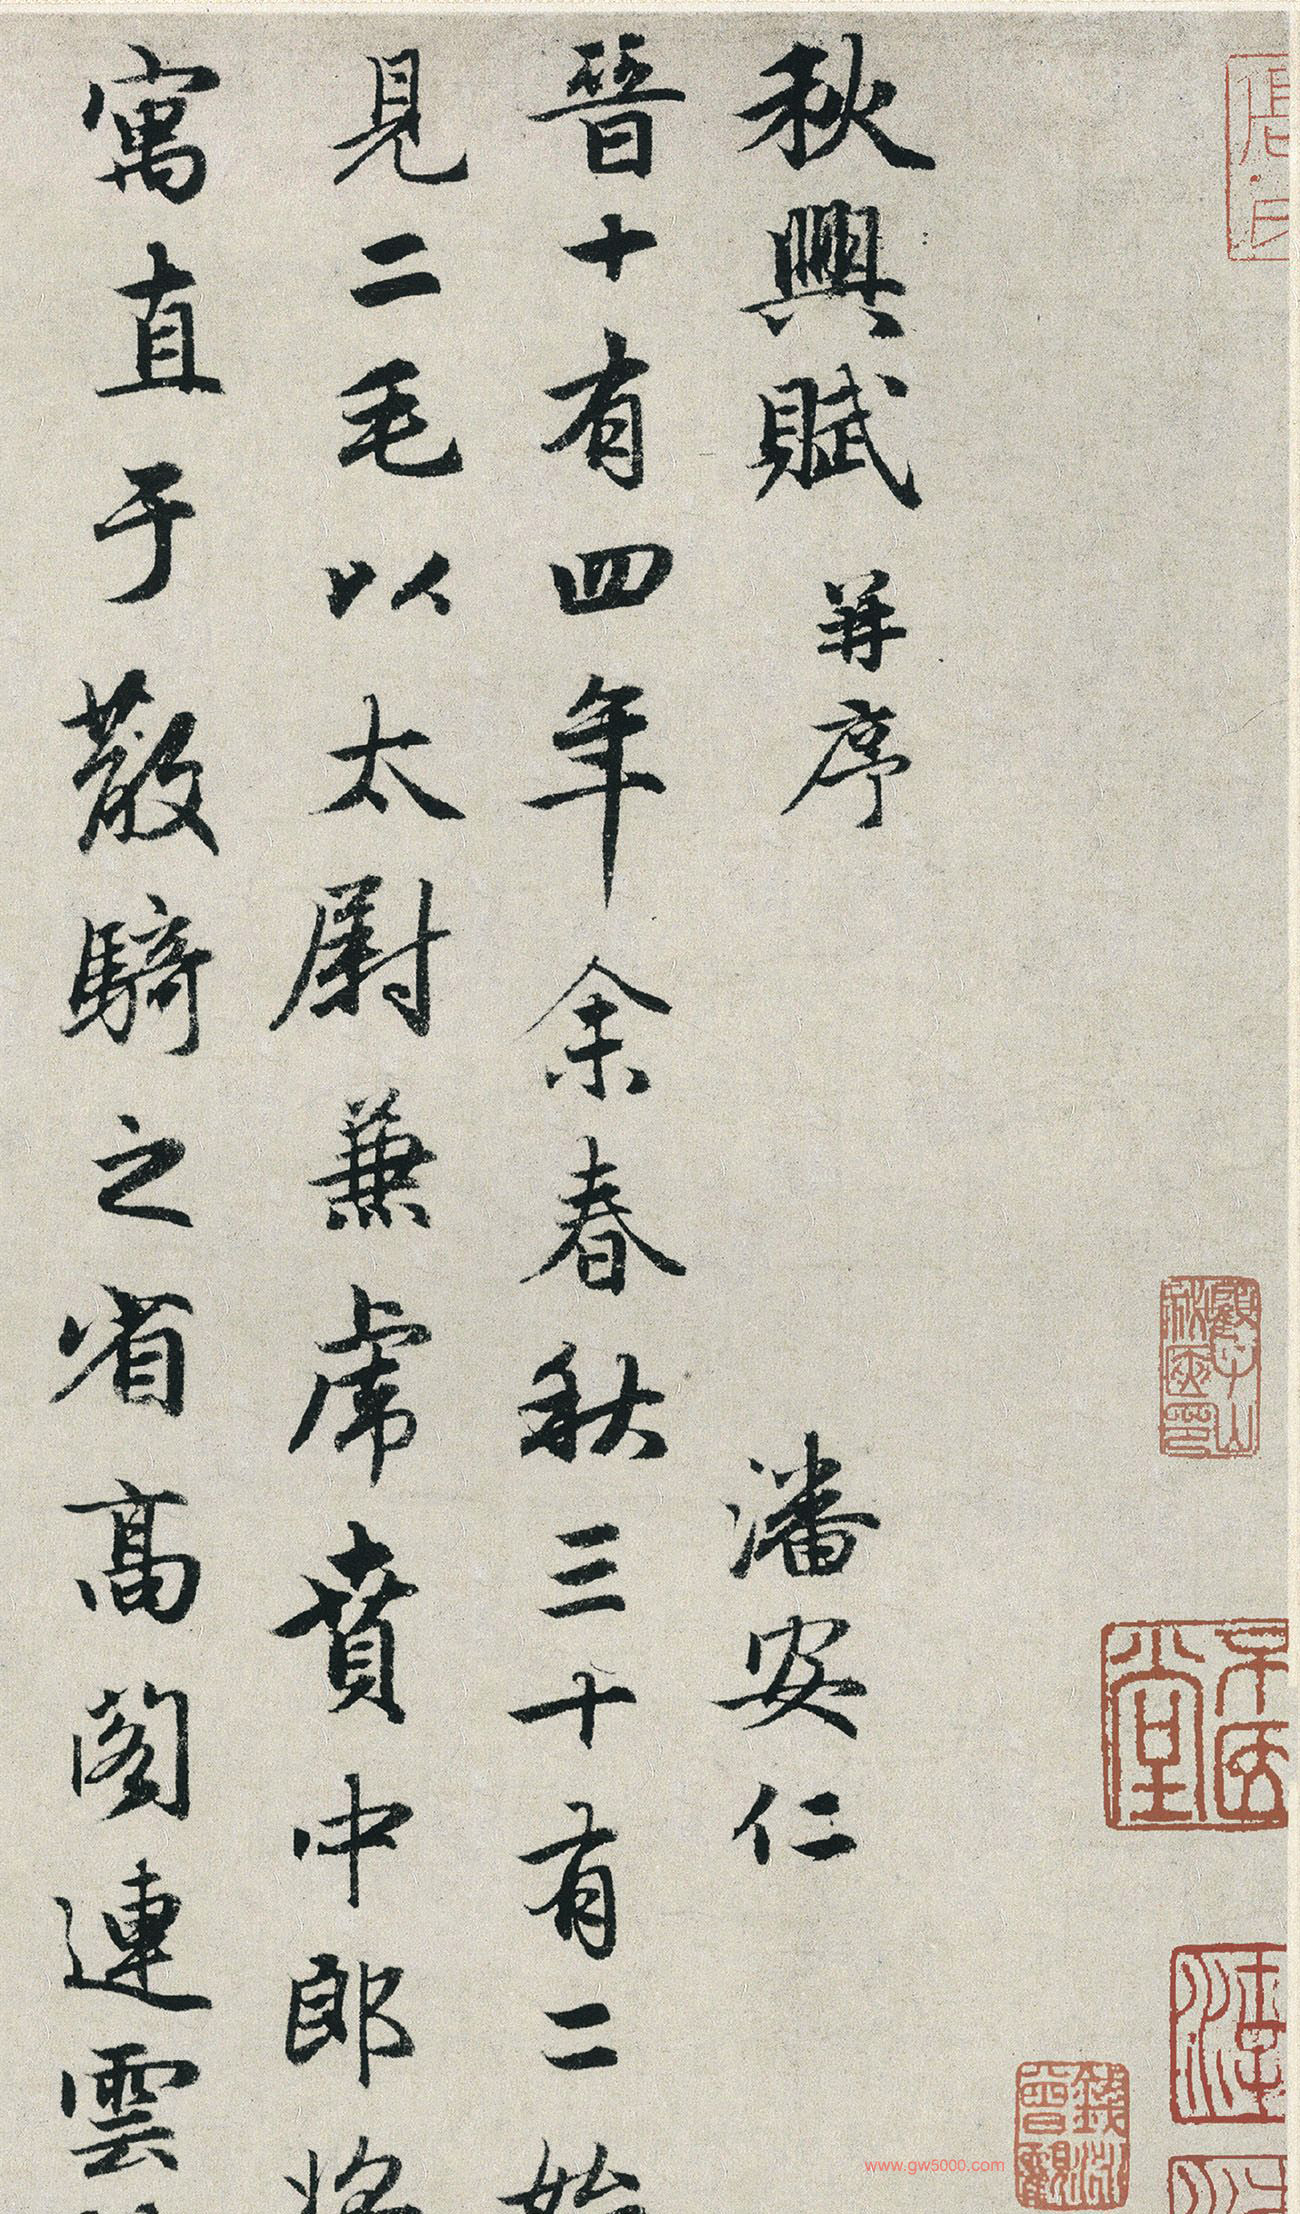 秋興賦 并序 潘安仁
晉十有四年余春秋三十有二始
見二毛以太尉兼虎賁中郎將
寓直于散騎之省高閣連雲
www.gw5000.com